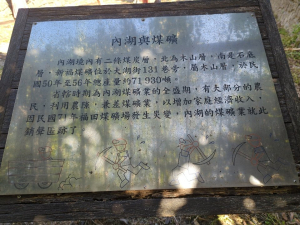 內湖與煤礦
內湖境內有二條煤炭層，北為木山層，南是石底
層，新福煤礦位於大湖街131巷旁，屬木山層，於民
國50年至56年總產量約71,930噸。
者時期為內湖煤礦業的全盛期，有大部分的農
民，利用農隙，兼差煤礦業，以增加家庭經濟收入，
因民國71年福田煤礦場發生災變，內湖的煤礦業就此
銷聲匿跡了